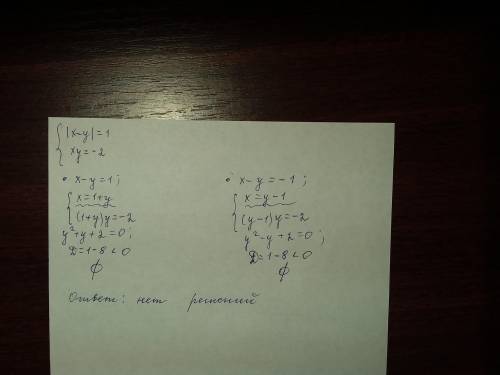 { |x-y|=1
xy=-2
• x-y=1;
{ x=1+y
(1+y)y=-2
y²+y+2=0;
D=1-8<0
∅
• x-y=-1;
{ x=y-1
(y-1)y=-2
y²-y+2=0;
D=1-8<0
∅
Ответ: нет решений